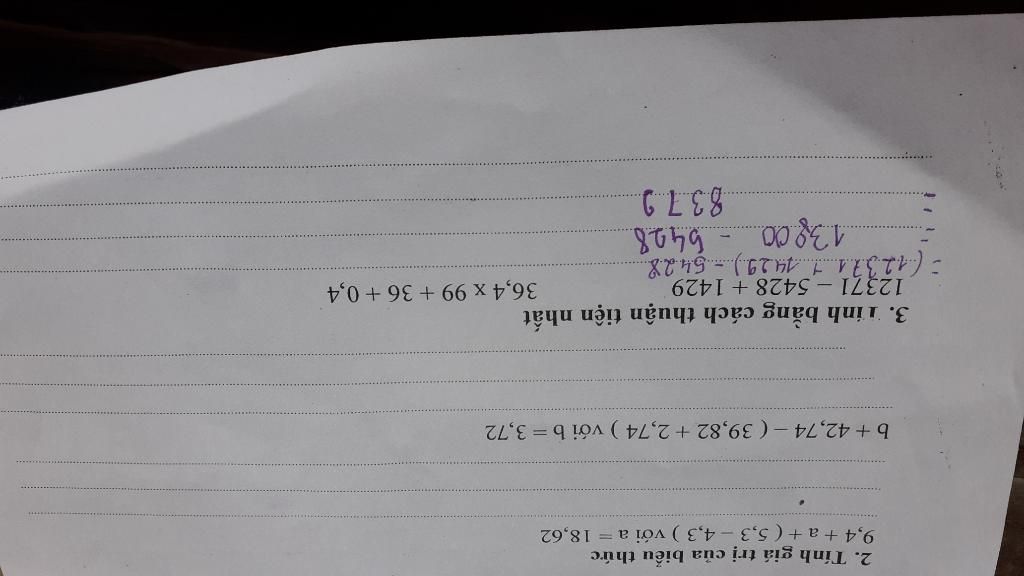 2. Tính giá trị của biểu thức
9,4 + a + ( 5,3 – 4,3 ) với a = 18,62
b + 42,74 – ( 39,82 + 2,74 ) với b = 3,72
3. Tính bằng cách thuận tiện nhất
12371 – 5428 + 1429 36,4 x 99 + 36 + 0,4
= (12371 + 1429) - 5428
= 13800 - 5428
= 8372